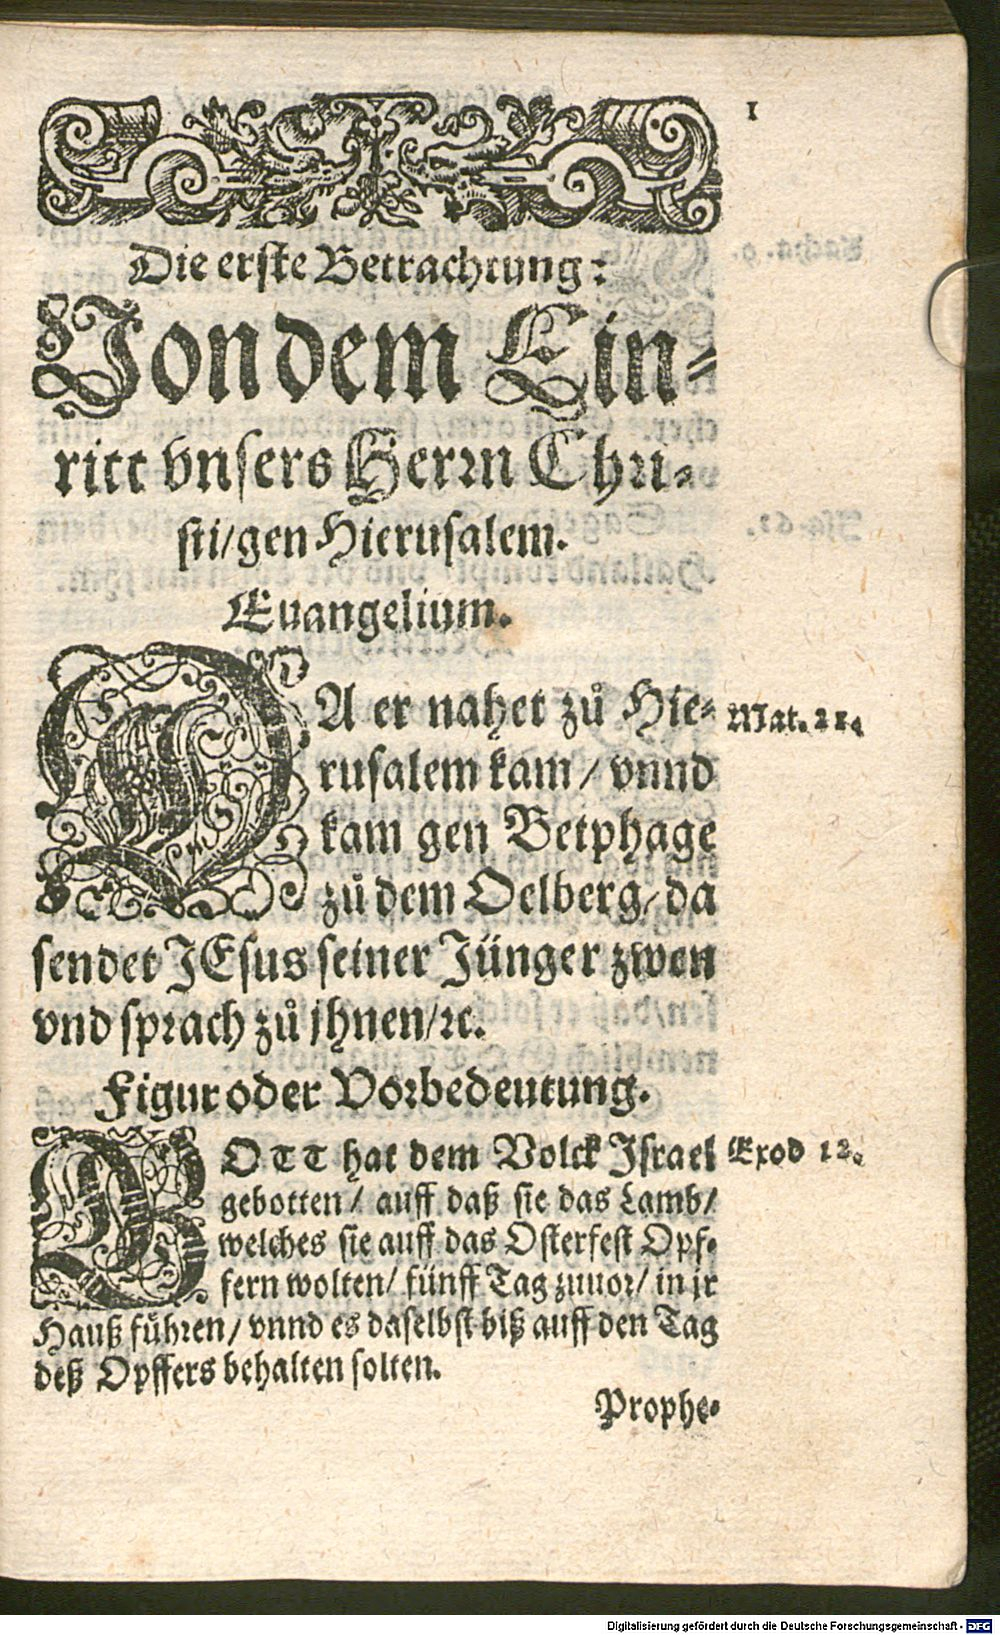 1
Die erste Betrachtung:
Von dem Ein-
ritt vnsers Herrn Chri-
sti/gen Hierusalem.
Euangelium.
DA er nahet zů Hie- Mat. 21.
rusalem kam / vnnd
kam gen Betphage
zů dem Oelberg/ da
sendet JEsus seiner Jünger zwen
vnd sprach zů jhnen/ꝛc.
Figur oder Vorbedeutung.
GOTT hat dem Volck Israel Exod 12.
gebotten / auff daß sie das Lamb/
welches sie auff das Osterfest Opf-
fern wolten/ fünff Tag zuuor/ in jr
Hauß führen / vnnd es daselbst biß auff den Tag
deß Opffers behalten solten.
Prophe-
Digitalisierung gefördert durch die Deutsche Forschungsgemeinschaft - DFG